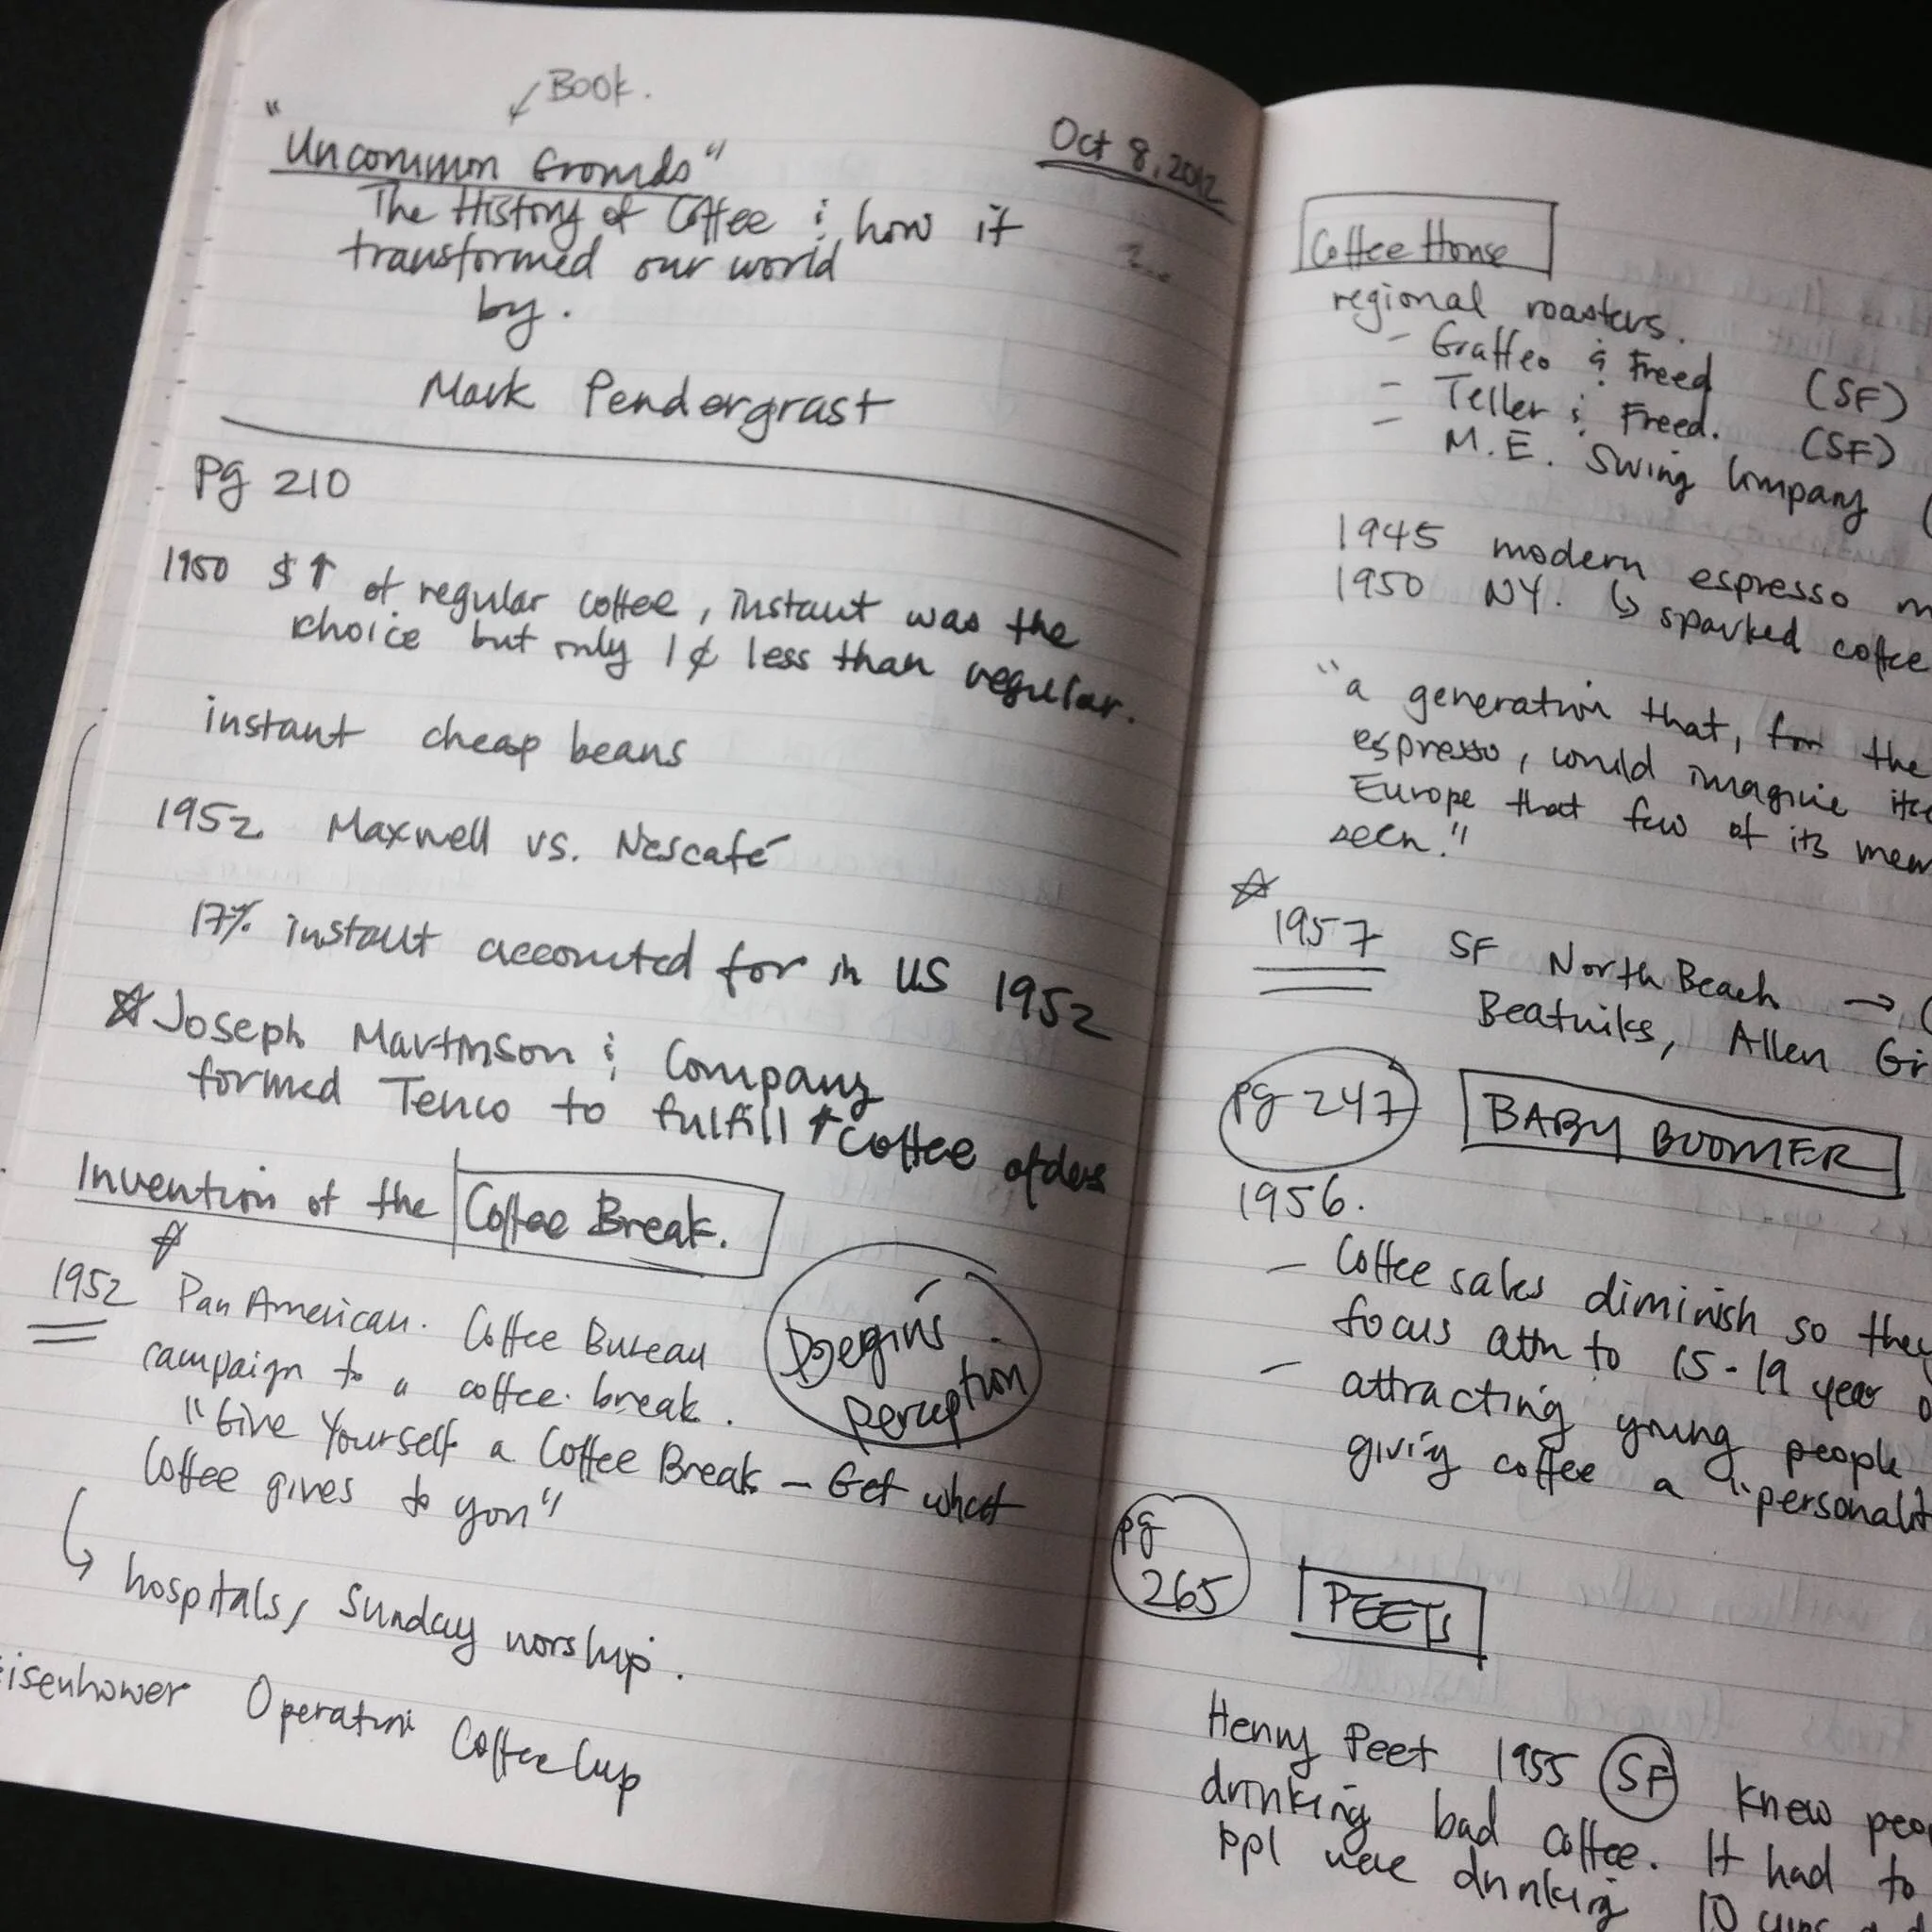 Book.
"Uncommon Grounds"
Oct 8, 2012
The History of Coffee & how it
transformed our world
by.
Mark Pendergrast
pg 210
1950 $↑ of regular coffee, instant was the
choice but only 1¢ less than regular.
instant cheap beans
1952 Maxwell vs. Nescafé
17% instant accounted for in US 1952
☆ Joseph Martinson & Company
formed Tenco to fulfill ↑ coffee orders
Invention of the Coffee Break.
☆
1952 Pan American. Coffee Bureau
campaign to a coffee break.
begins
perception
"Give Yourself a Coffee Break – Get what
Coffee gives to you"
↳ hospitals, Sunday worship.
Eisenhower Operation Coffee Cup
Coffee House
regional roasters.
- Graffeo & Freed (SF)
- Teller & Freed. (SF)
- M.E. Swing Company (
1945 modern espresso m
1950 NY. ↳ sparked coffee
"a generation that, for the
espresso, would imagine itse
Europe that few of its mem
seen."
☆
1957 SF North Beach → (
Beatniks, Allen Gi
pg 247 BABY BOOMER
1956.
- Coffee sales diminish so they
focus attn to 15-19 year o
- attracting young people
giving coffee a "personalit
pg
265
PEETS
Henry Peet 1955 SF knew peo
drinking bad coffee. It had to
ppl were drinking 10 cups a d